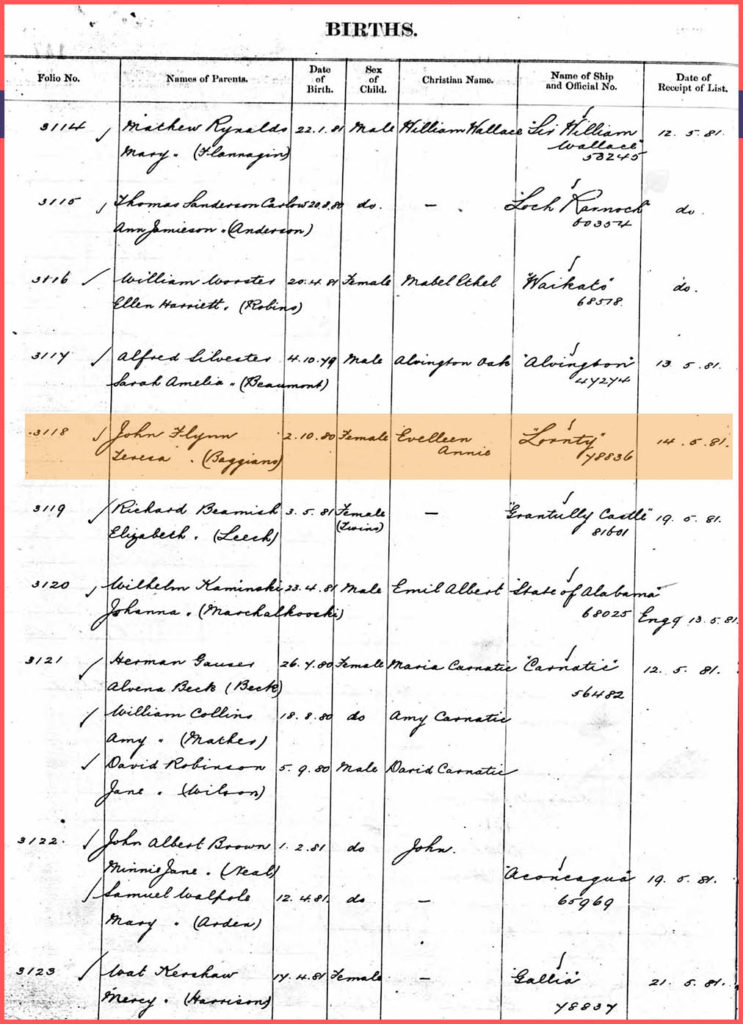 BIRTHS.
Folio No. Names of Parents. Date of Birth. Sex of Child. Christian Name. Name of Ship and Official No. Date of Receipt of List.
3114 Mathew Rynalds 22.1.81 Male William Wallace "Sir William Wallace" 12.5.81.
Mary. (Flannagin) 53245
3115 Thomas Sanderson Carlow 20.8.80 do. — "Loch Rannoch" do.
Ann Jamieson. (Anderson) 60354
3116 William Worster 20.4.81 Female Mabel Ethel "Waikato" do.
Ellen Harriett. (Robins) 68518
3117 Alfred Silvester 4.10.79 Male Alvington Oak "Alvington" 13.5.81.
Sarah Amelia. (Beaumont) 47274
3118 John Flynn 2.10.80 Female Evelleen Annie "Lornty" 14.5.81.
Teresa. (Baggiano) 78836
3119 Richard Beamish 3.5.81 Female — "Grantully Castle" 19.5.81.
Elizabeth. (Leech) (Twins) 81601
3120 Wilhelm Kaminski 23.4.81 Male Emil Albert "State of Alabama"
Johanna. (Marchalkowski) 68025 Engq 13.5.81
3121 Herman Gauser 26.7.80 Female Maria Carnatic "Carnatic" 12.5.81.
Alvena Beck (Beck) 56482
William Collins 18.8.80 do Amy Carnatic
Amy. (Mather)
David Robinson 5.9.80 Male David Carnatic
Jane. (Wilson)
3122 John Albert Brown 1.2.81 do John.
Minnie Jane. (Neal) "Aconcagua" 19.5.81.
Samuel Walpole 12.4.81. do — 65969
Mary. (Arden)
3123 Wat Kershaw 14.4.81 Female — "Gallia" 21.5.81.
Mercy. (Harrison) 78837